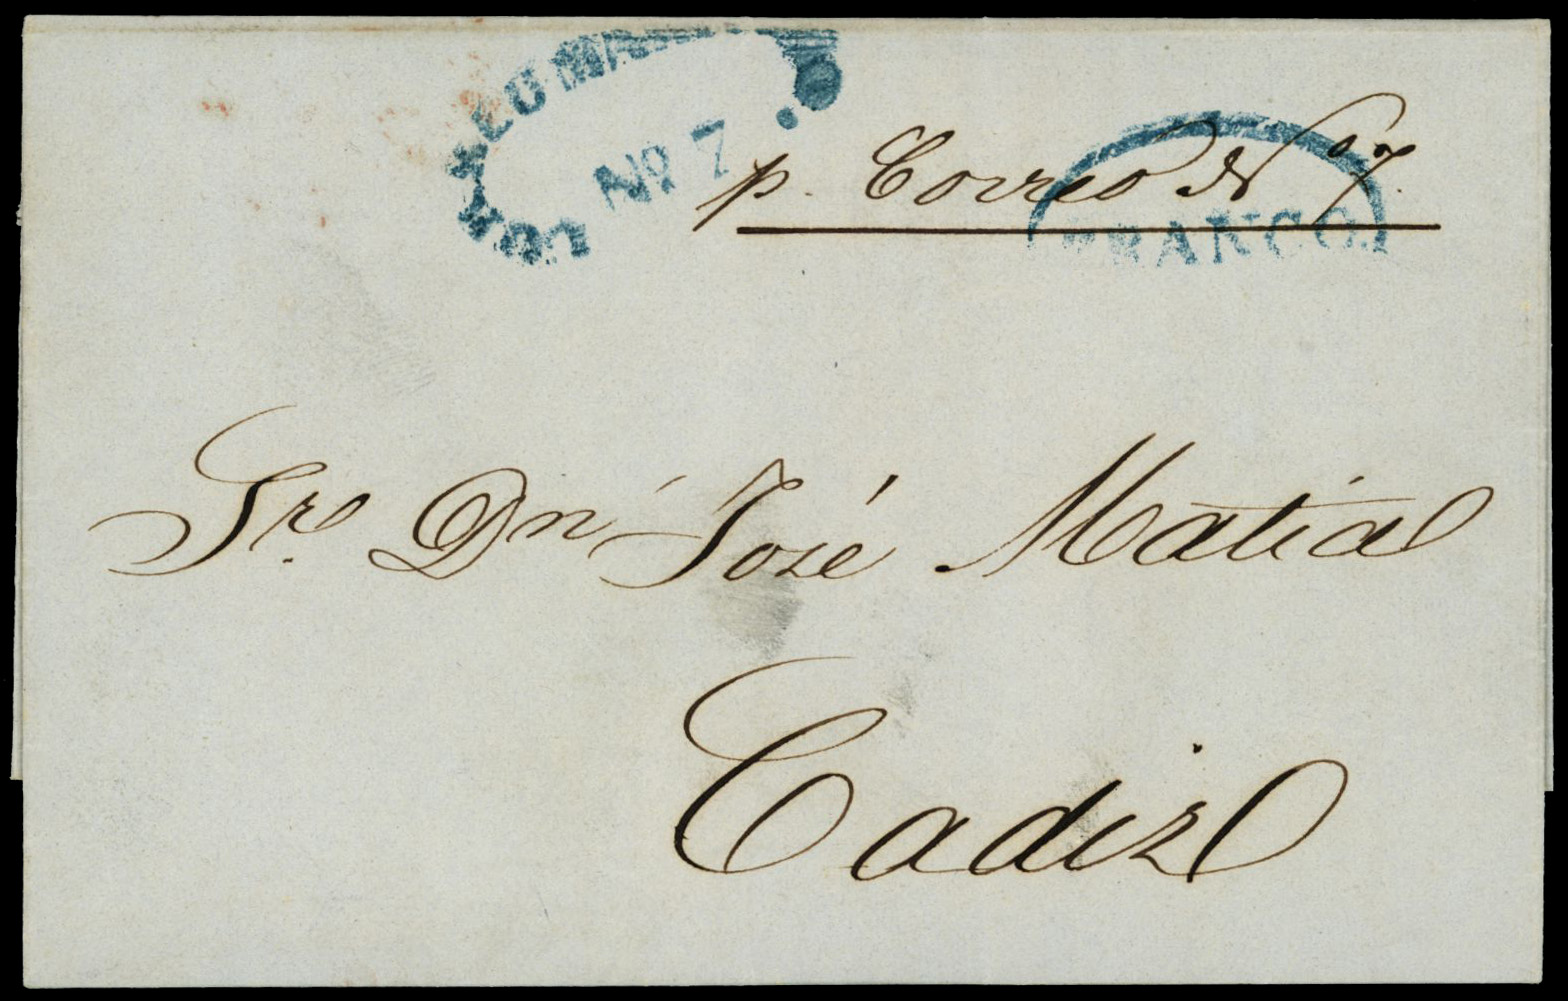 Nº 7
p. Correo Nº 7.
FRANCO.
Sr. Dn José Matia
Cadiz